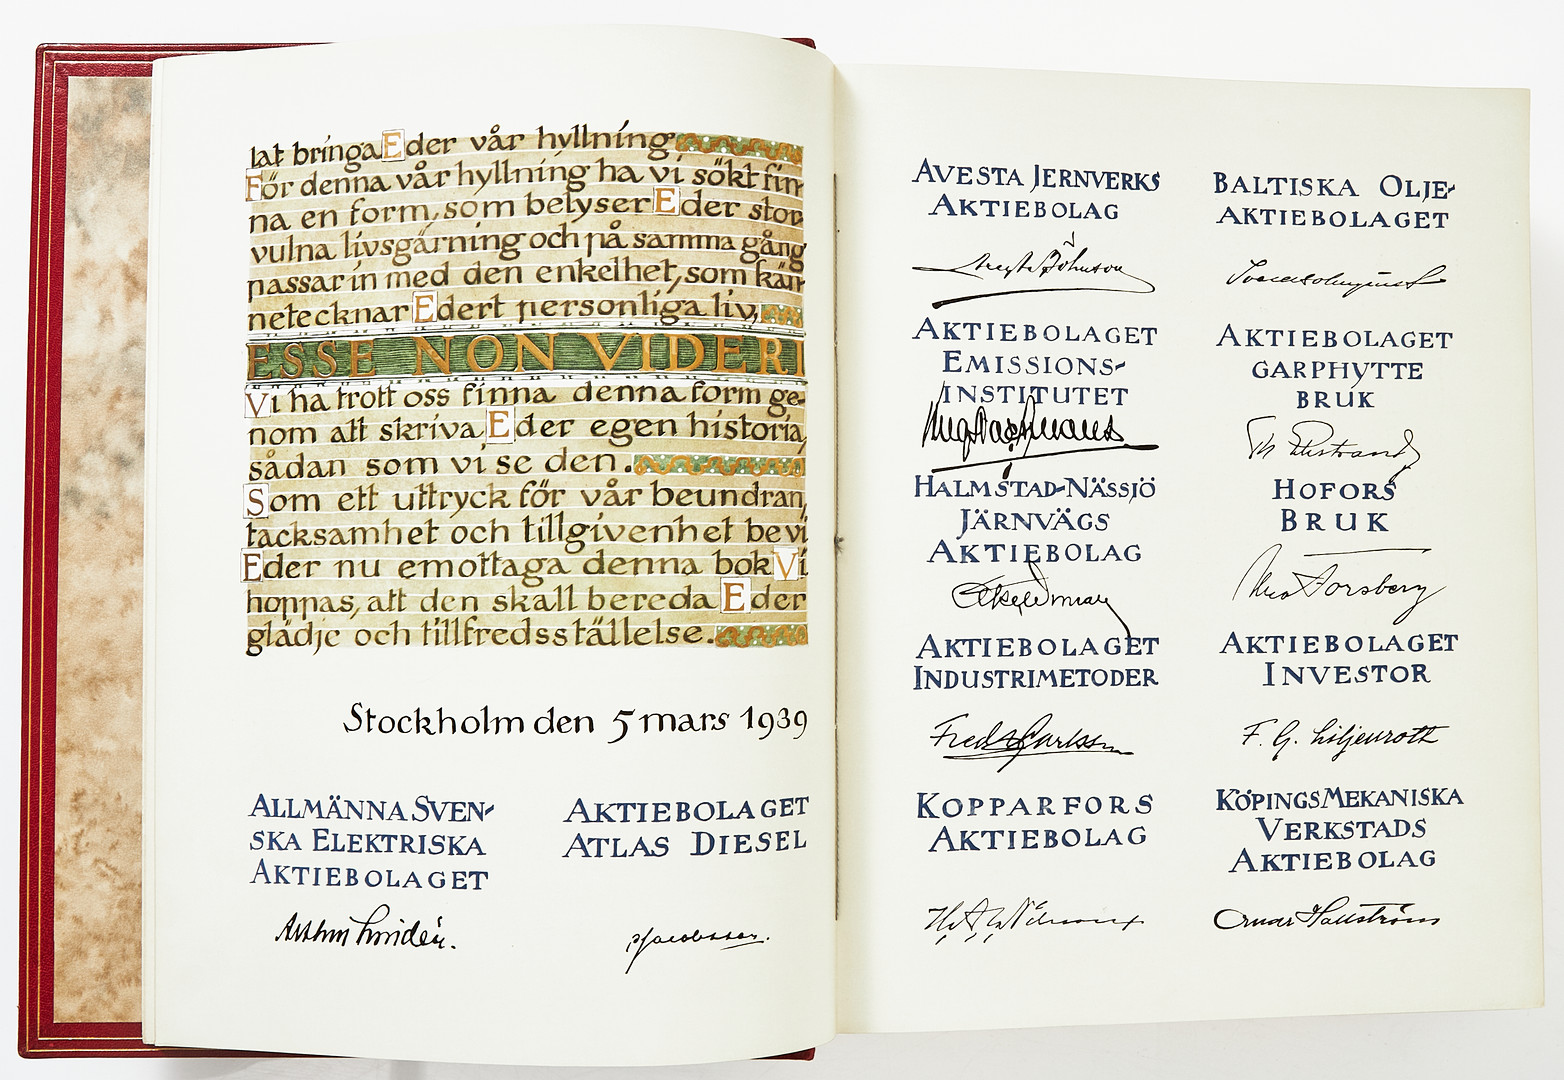 låt bringa Eder vår hyllning
För denna vår hyllning ha vi sökt fin-
na en form, som belyser Eder stor-
vulna livsgärning och på samma gång
passar in med den enkelhet, som kän-
netecknar Edert personliga liv,
ESSE NON VIDERI
Vi ha trott oss finna denna form ge-
nom att skriva Eder egen historia,
sådan som vi se den.
Som ett uttryck för vår beundran,
tacksamhet och tillgivenhet be vi
Eder nu emottaga denna bok Vi
hoppas, att den skall bereda Eder
glädje och tillfredsställelse.
Stockholm den 5 mars 1939
ALLMÄNNA SVEN-
SKA ELEKTRISKA
AKTIEBOLAGET
Arthur Lindén.
AKTIEBOLAGET
ATLAS DIESEL
Jacobsson.
AVESTA JERNVERKS
AKTIEBOLAG
Johnson
AKTIEBOLAGET
EMISSIONS-
INSTITUTET
HALMSTAD-NÄSSJÖ
JÄRNVÄGS
AKTIEBOLAG
AKTIEBOLAGET
INDUSTRIMETODER
Fred Carlsson
KOPPARFORS
AKTIEBOLAG
BALTISKA OLJE-
AKTIEBOLAGET
AKTIEBOLAGET
GARPHYTTE
BRUK
Th Ekstrand
HOFORS
BRUK
Forsberg
AKTIEBOLAGET
INVESTOR
F. G. Liljenroth
KÖPINGS MEKANISKA
VERKSTADS
AKTIEBOLAG
Hallström